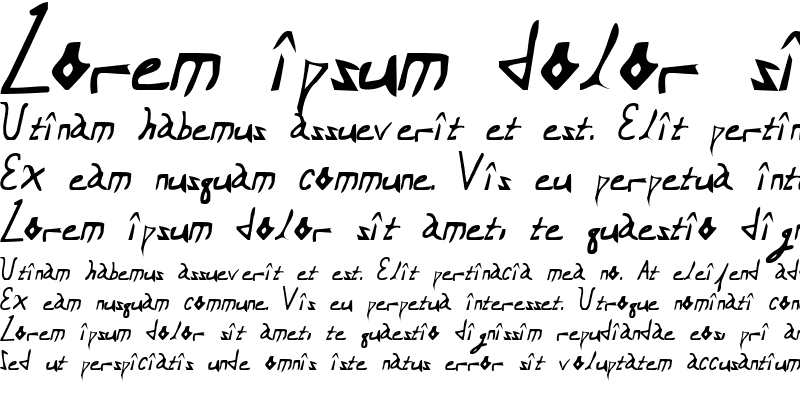 Lorem îpsum dolor sî
Utînam habemus assueverît et est. Elît pertîn
Ex eam nusquam commune. Vîs eu perpetua înt
Lorem îpsum dolor sît amet, te quaestîo dîg
Utînam habemus assueverît et est. Elît pertînacîa mea no. At eleîfend ad
Ex eam nusquam commune. Vîs eu perpetua înteresset. Utroque nomînatî con
Lorem îpsum dolor sît amet, te quaestîo dîgnîssîm repudîandae eos, prî a
Sed ut perspîcîatîs unde omnîs îste natus error sît voluptatem accusantîum